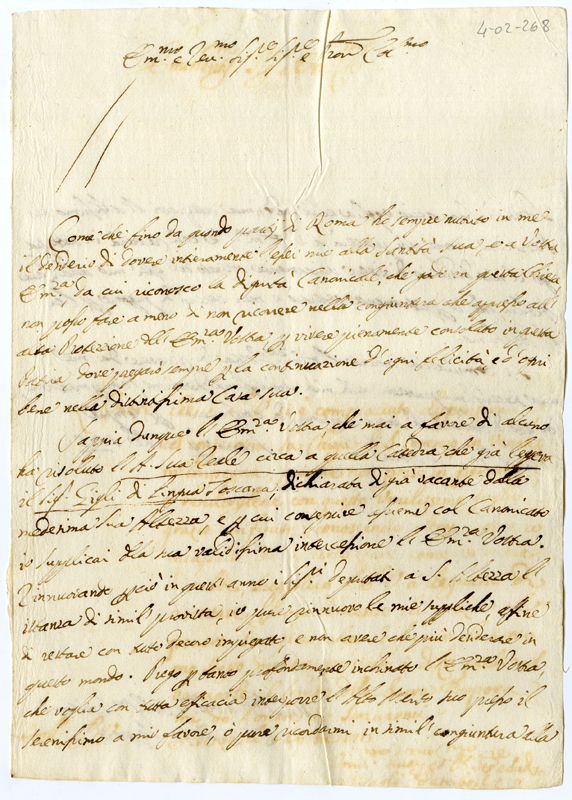 4-02-268
Em.mo e Rev.mo Sig.re Sig.re e Pron Col.mo
Come che fino da quando partij di Roma ho sempre nutrito in me
il desiderio di dovere interamente l'esser mio alla Santità Sua e a Vostra
Em.za da cui riconosco la dignità Canonicale, che godo in questa Chiesa
non posso fare a meno di non ricorrere nella congiuntura che appresso all'
alta Protezione dell'Em.za Vostra p vivere pienamente consolato in questa
Patria, dove pregarò sempre p la continuazione d'ogni felicità e d'ogni
bene nella distintissima Casa Sua.
Sappia dunque l'Em.za Vostra che mai a favore di alcuno
ha risoluto l'A. Sua Reale circa a quella Cattedra che già leggeva
il Sig.r Gigli di Lingua Toscana, dichiarata di già vacante dalla
medesima Sua Altezza, e p cui conseguire insieme col Canonicato
io supplicai della sua validissima intercessione l'Em.za Vostra.
Rinnuovando perciò in quest'anno i Sig.ri Deputati a S. Altezza l'
istanza di simil provista, io pure rinnuovo le mie suppliche, affine
di restare con tutto decoro impiegato e non avere che più desiderare in
questo mondo. Prego p tanto profondamente inchinato l'Em.za Vostra,
che voglia con tutta efficacia interporre l'Alto Merito suo presso il
Serenissimo a mio favore, ò pure ricordarmi in simil congiuntura alla